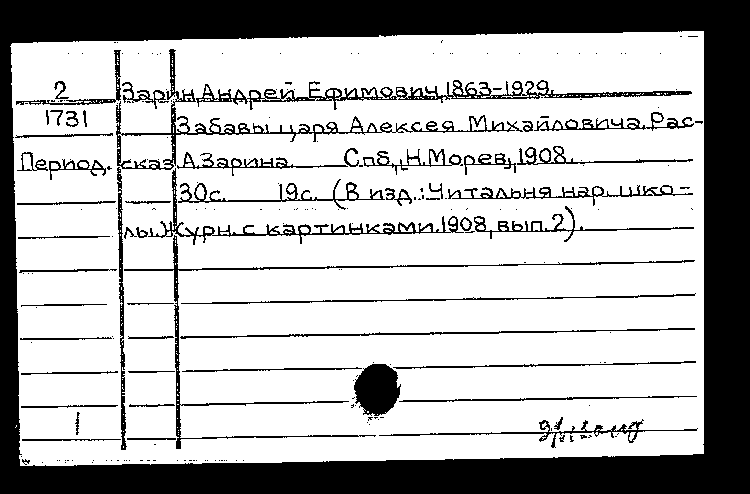 2 Зарин, Андрей Ефимович, 1863-1929.
1731 Забавы царя Алексея Михайловича. Рас-
Период. сказ А. Зарина. Спб., [Н. Морев], 1908.
30с. 19с. (В изд.: Читальня нар. шко-
лы. Журн. с картинками. 1908, вып. 2).
1